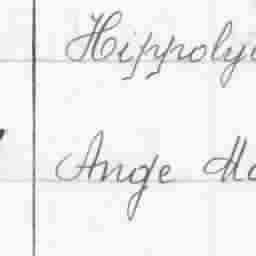 Hippoly
Ange Ma